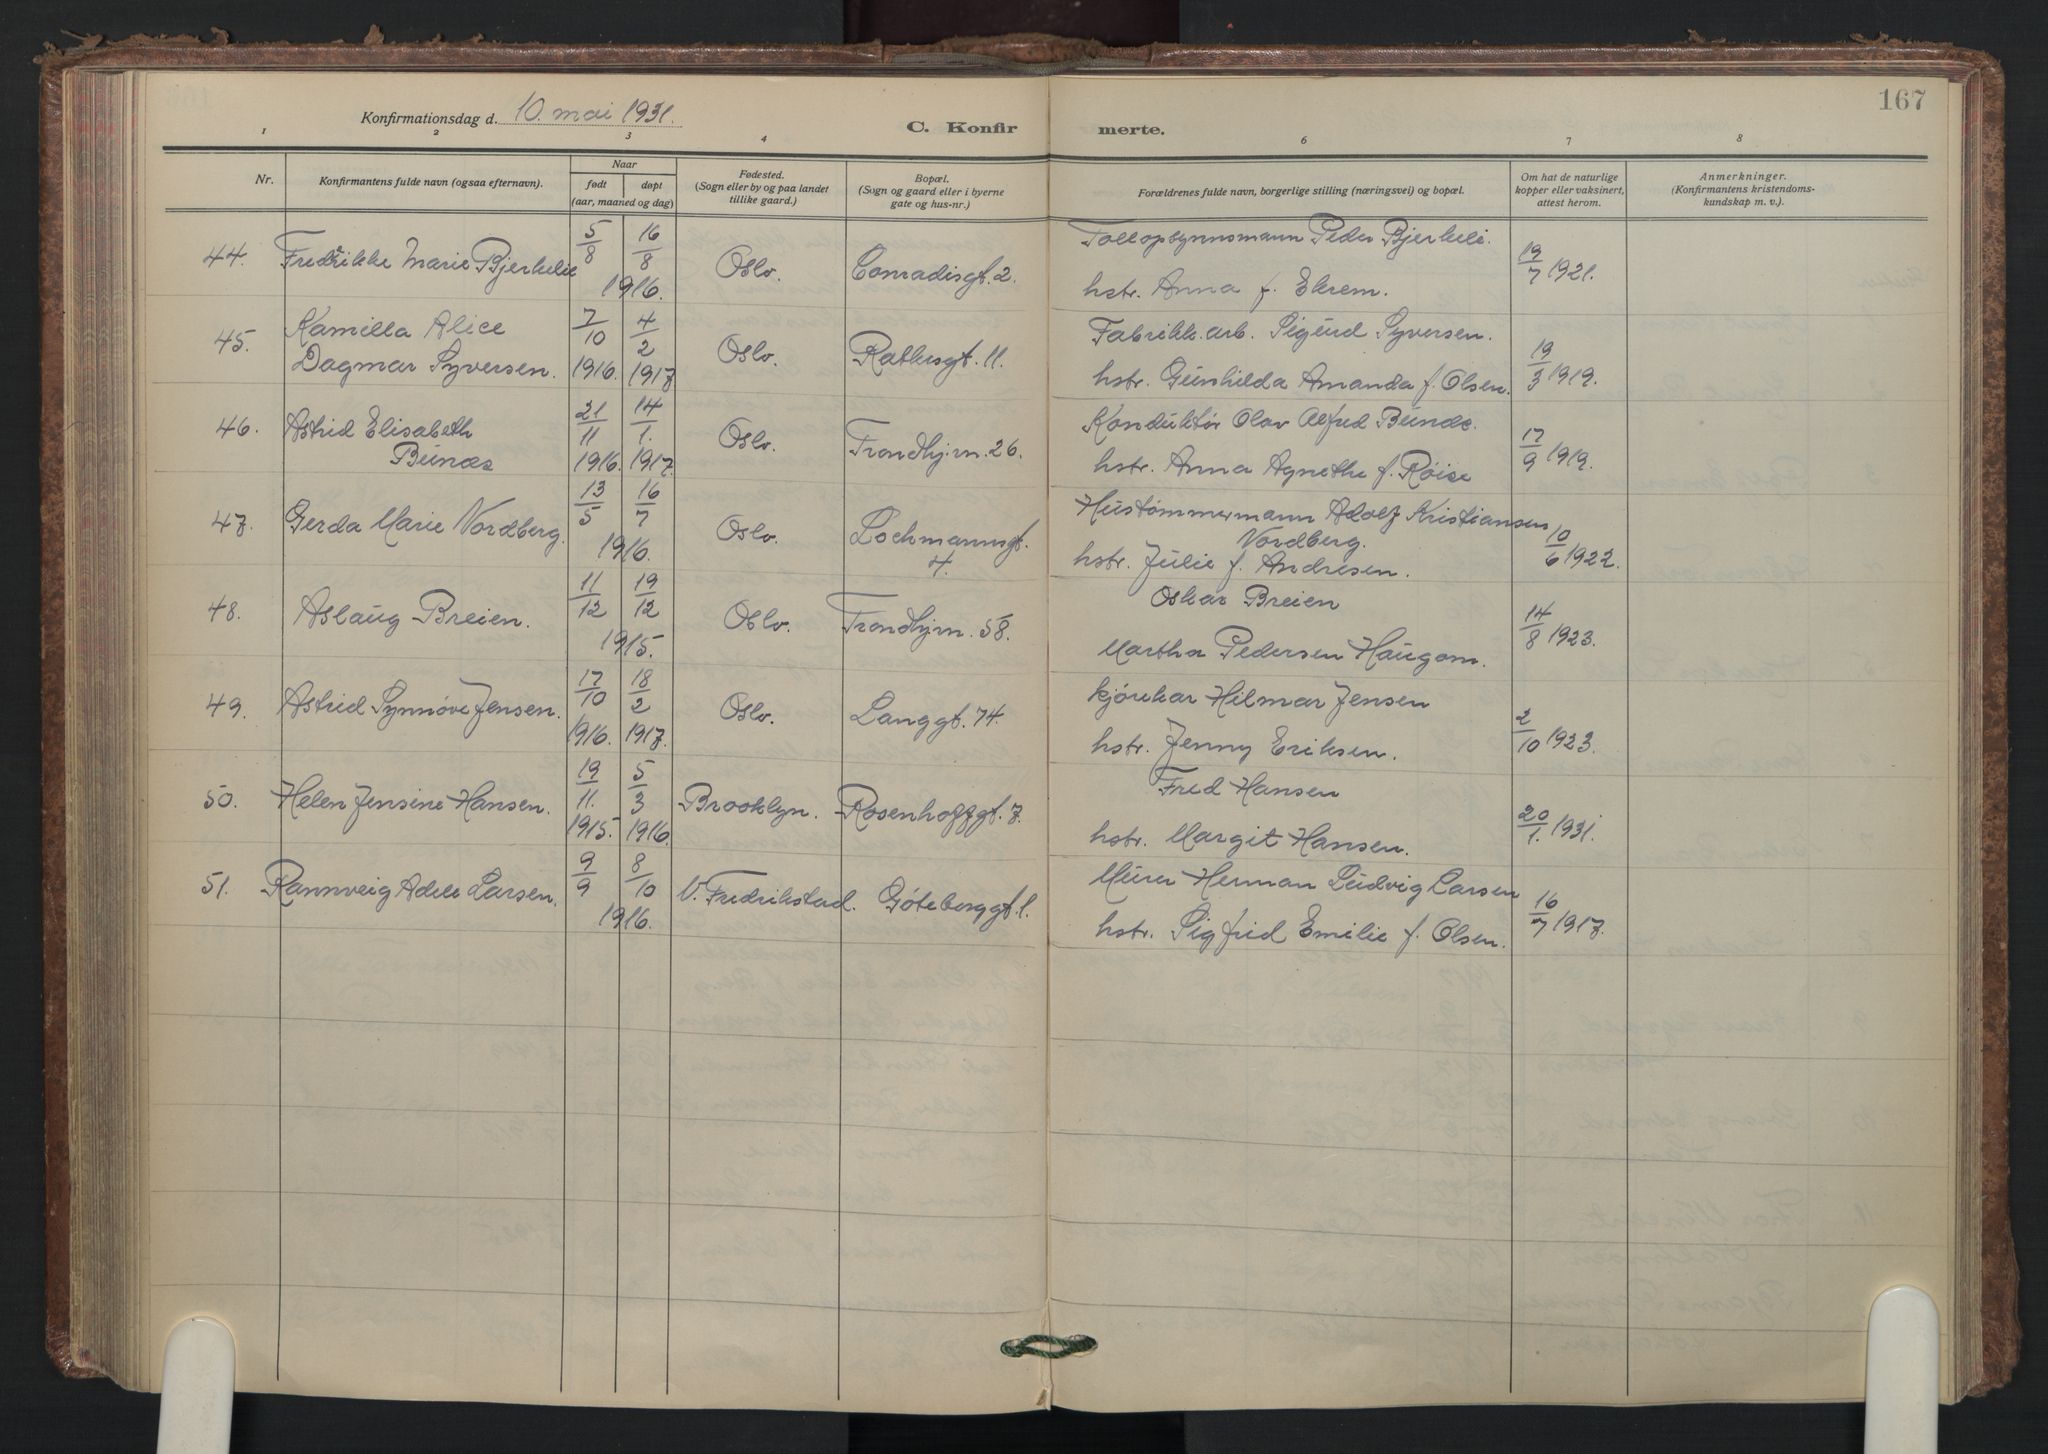 167
Konfirmationsdag d. 10. mai 1931.
C. Konfirmerte.
1 2 3 4 6 7 8
Nr.
Konfirmantens fulde navn (ogsaa efternavn).
Naar
født døpt
(aar, maaned og dag)
Fødested.
(Sogn eller by og paa landet
tillike gaard.)
Bopæl.
(Sogn og gaard eller i byerne
gate og hus-nr.)
Forældrenes fulde navn, borgerlige stilling (næringsvei) og bopæl.
Om hat de naturlige
kopper eller vaksinert,
attest herom.
Anmerkninger.
(Konfirmantens kristendoms-
kundskap m. v.).
44. Fredrikke Marie Bjerkelie 5/8 16/8 1916. Oslo. Conradisgt. 2. Tollopsynsmann Peder Bjerkeli. 19/7 1921.
hstr. Anna f. Ekrem.
45. Kamilla Alice 7/10 4/2 Fabrikk.arb. Sigurd Syversen.
Dagmar Syversen. 1916. 1917. Oslo. Rathkesgt. 11. hstr. Gunhilda Amanda f. Olsen. 19/3 1919.
46. Astrid Elisabeth 21/11 14/1. Oslo. Trondhj.vn. 26. Konduktør Olav Alfred Bunæs.
Bunæs 1916. 1917. hstr. Anna Agnethe f. Røise 17/9 1919.
47. Gerda Marie Nordberg. 13/5 16/7 1916. Oslo. Lochmannsgt. 4. Hustømmermann Adolf Kristiansen
Nordberg.
hstr. Julie f. Andresen. 10/6 1922.
48. Aslaug Breien. 11/12 19/12 1915. Oslo. Trondhj.vn. 58. Oskar Breien
Martha Pedersen Haugom. 14/8 1923.
49. Astrid Synnøve Jensen. 17/10 1916. 18/2 1917. Oslo. Langgt. 74. Kjørekar Hilmar Jensen
hstr. Jenny Eriksen. 2/10 1923.
50. Helen Jensine Hansen. 19/11. 1915. 5/3 1916. Brooklyn. Rosenhoffgt. 7. Fred Hansen
hstr. Margit Hansen. 20/1. 1931.
51. Rannveig Adele Larsen. 9/9 8/10 1916. V. Fredrikstad. Gøteborggt. 1. Murer Herman Ludvig Larsen
hstr. Sigfrid Emilie f. Olsen. 16/7 1917.